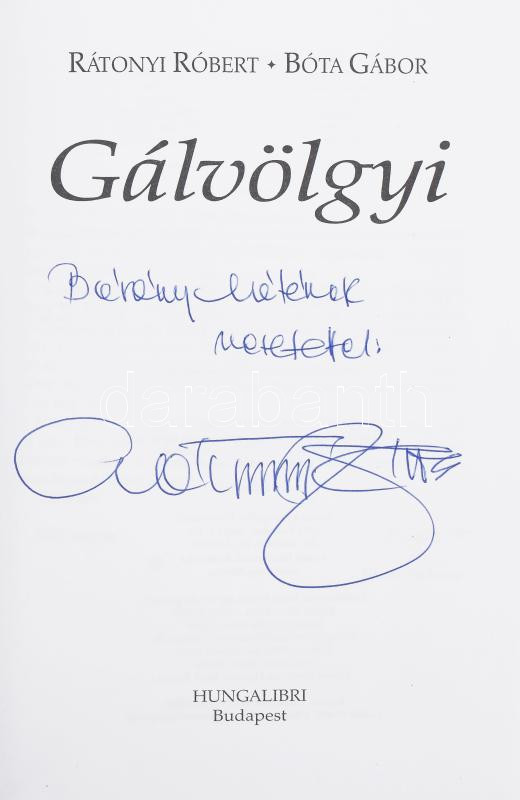 RÁTONYI RÓBERT ✦ BÓTA GÁBOR
Gálvölgyi
Bárány Máténak
szeretettel:
darabanth
HUNGALIBRI
Budapest